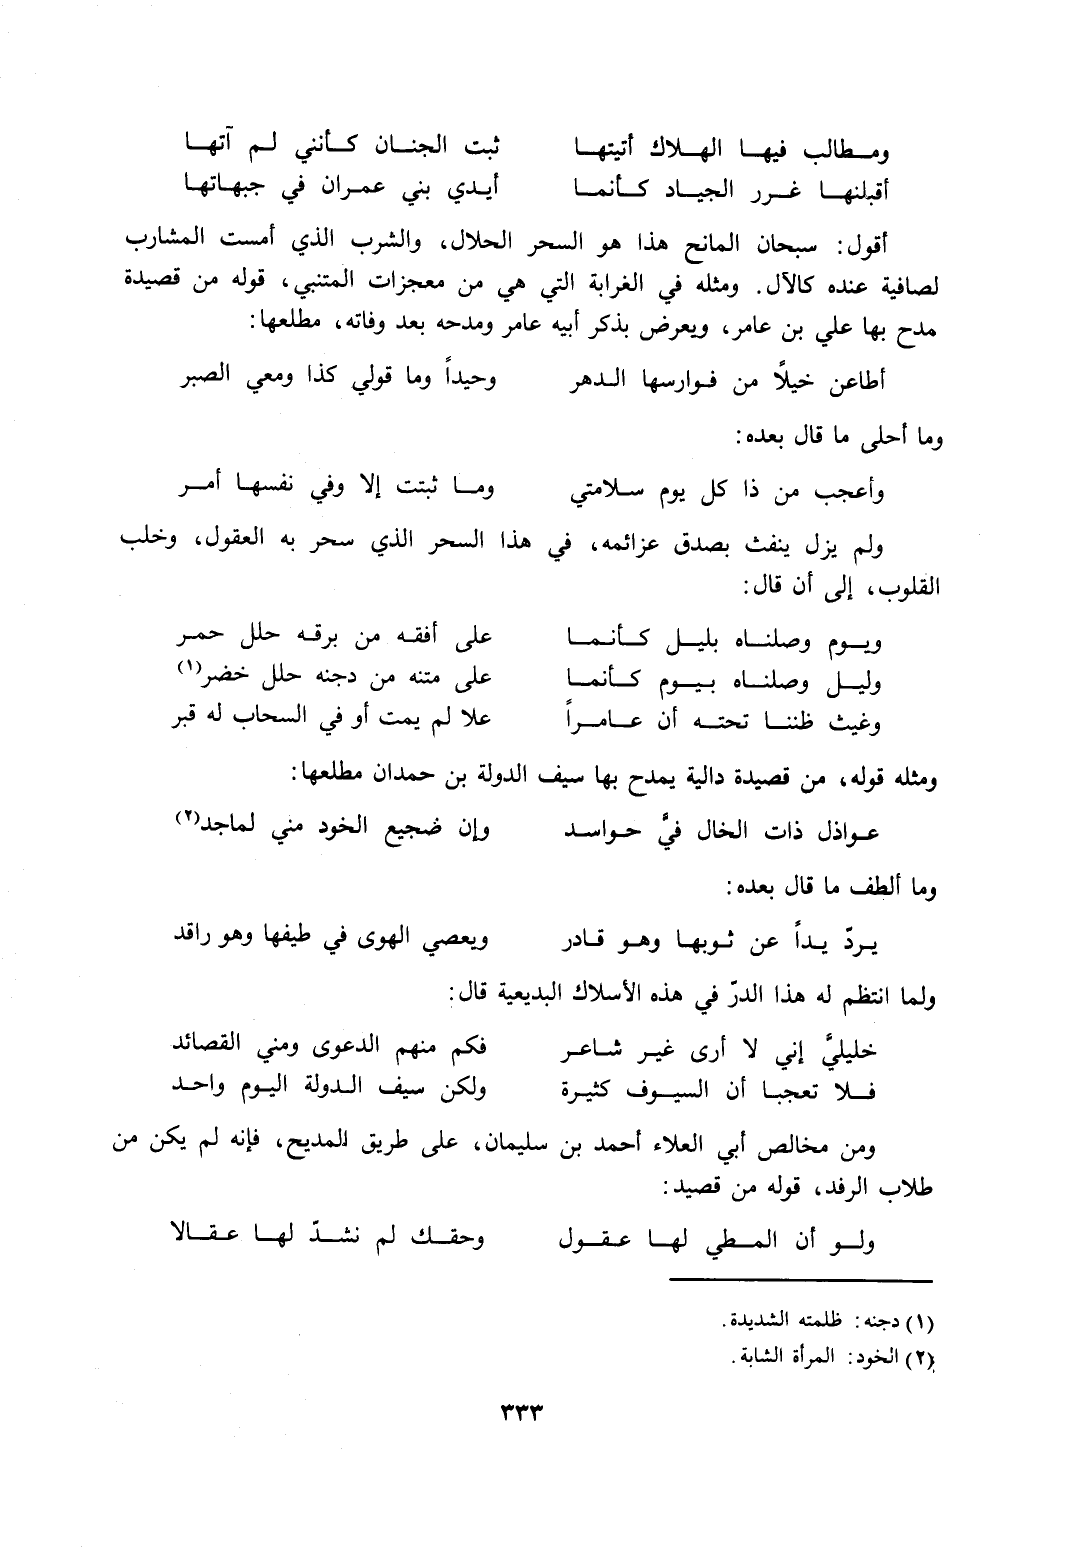 ومطالب فيها الهلاك أتيتها ثبت الجنان كأنني لم آتها
أقبلنها غرر الجياد كأنما أيدي بني عمران في جبهاتها
أقول: سبحان المانح هذا هو السحر الحلال، والشرب الذي أمست المشارب
لصافية عنده كالآل. ومثله في الغرابة التي هي من معجزات المتنبي، قوله من قصيدة
مدح بها علي بن عامر، ويعرض بذكر أبيه عامر ومدحه بعد وفاته، مطلعها:
أطاعن خيلاً من فوارسها الدهر وحيداً وما قولي كذا ومعي الصبر
وما أحلى ما قال بعده:
وأعجب من ذا كل يوم سلامتي وما ثبتت إلا وفي نفسها أمر
ولم يزل ينفث بصدق عزائمه، في هذا السحر الذي سحر به العقول، وخلب
القلوب، إلى أن قال:
ويوم وصلناه بليل كأنما على أفقه من برقه حلل حمر
وليل وصلناه بيوم كأنما على متنه من دجنه حلل خضر(١)
وغيث ظننا تحته أن عامراً علا لم يمت أو في السحاب له قبر
ومثله قوله، من قصيدة دالية يمدح بها سيف الدولة بن حمدان مطلعها:
عواذل ذات الخال فيَّ حواسد وإن ضجيع الخود مني لماجد(٢)
وما ألطف ما قال بعده:
يردّ يداً عن ثوبها وهو قادر ويعصي الهوى في طيفها وهو راقد
ولما انتظم له هذا الدرّ في هذه الأسلاك البديعية قال:
خليليَّ إني لا أرى غير شاعر فكم منهم الدعوى ومني القصائد
فلا تعجبا أن السيوف كثيرة ولكن سيف الدولة اليوم واحد
ومن مخالص أبي العلاء أحمد بن سليمان، على طريق المديح، فإنه لم يكن من
طلاب الرفد، قوله من قصيد:
ولو أن المطي لها عقول وحقك لم نشدّ لها عقالا
(١) دجنه: ظلمته الشديدة.
(٢) الخود: المرأة الشابة.
٣٣٣